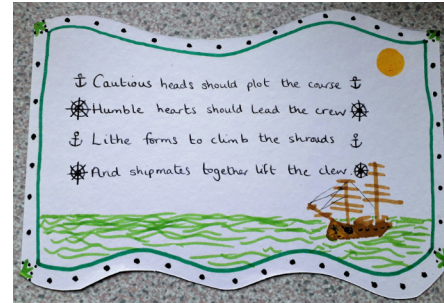 Cautious heads should plot the course
Humble hearts should Lead the crew
Lithe forms to climb the shrouds
And shipmates together lift the clew.